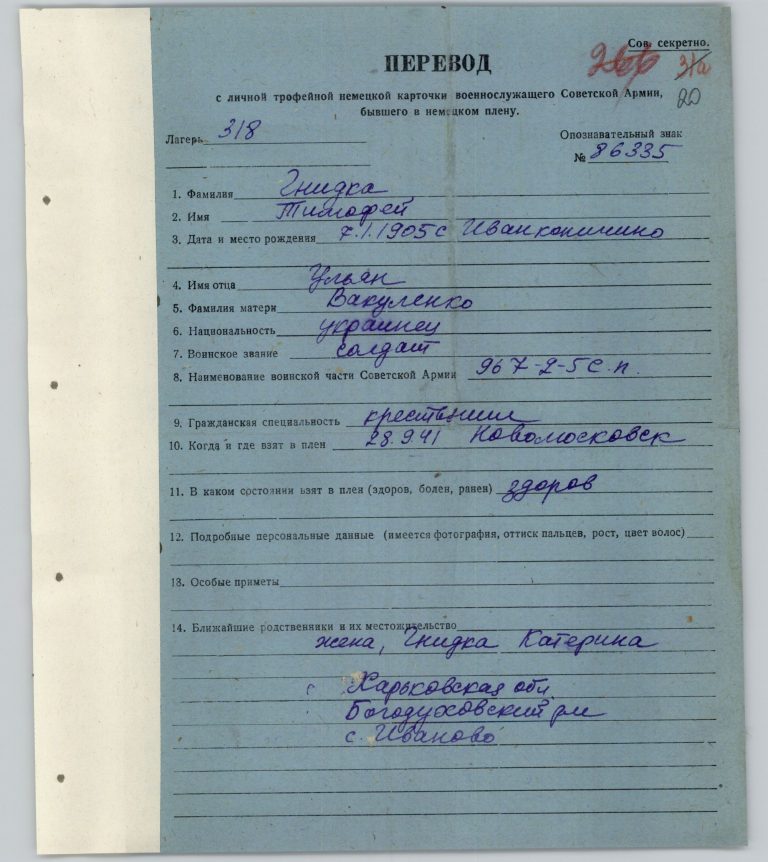 Сов. секретно.
266 31а
20
ПЕРЕВОД
с личной трофейной немецкой карточки военнослужащего Советской Армии,
бывшего в немецком плену.
Лагерь 318
Опознавательный знак
№ 86335
1. Фамилия Гнидка
2. Имя Тимофей
3. Дата и место рождения 7.1.1905 с Иванконичино
4. Имя отца Ульян
5. Фамилия матери Вакуленко
6. Национальность украинец
7. Воинское звание солдат
8. Наименование воинской части Советской Армии 967-2-5 с.п.
9. Гражданская специальность
10. Когда и где взят в плен 28.9 41 Новомосковск
11. В каком состоянии взят в плен (здоров, болен, ранен) здоров
12. Подробные персональные данные (имеется фотография, оттиск пальцев, рост, цвет волос)
13. Особые приметы
14. Ближайшие родственники и их местожительство
жена, Гнидка Катерина
Харьковская обл
Богодуховский р-н
с. Иваново